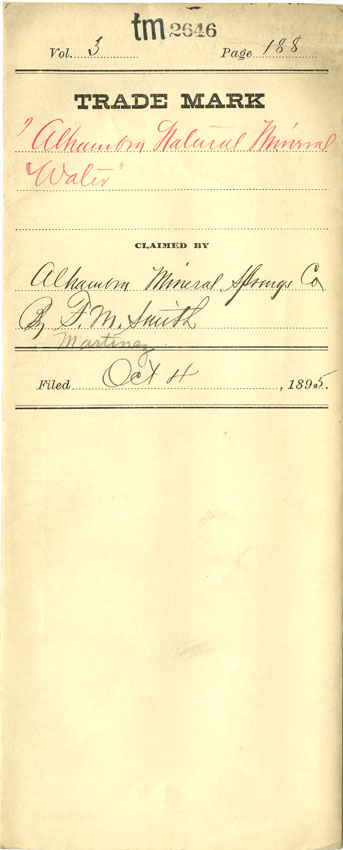 tm 2646
Vol. 3 Page 188
TRADE MARK
"Alhambra Natural Mineral
Water"
CLAIMED BY
Alhambra Mineral Springs Co
By F. M. Smith
Martinez
Filed Oct 4, 1895.